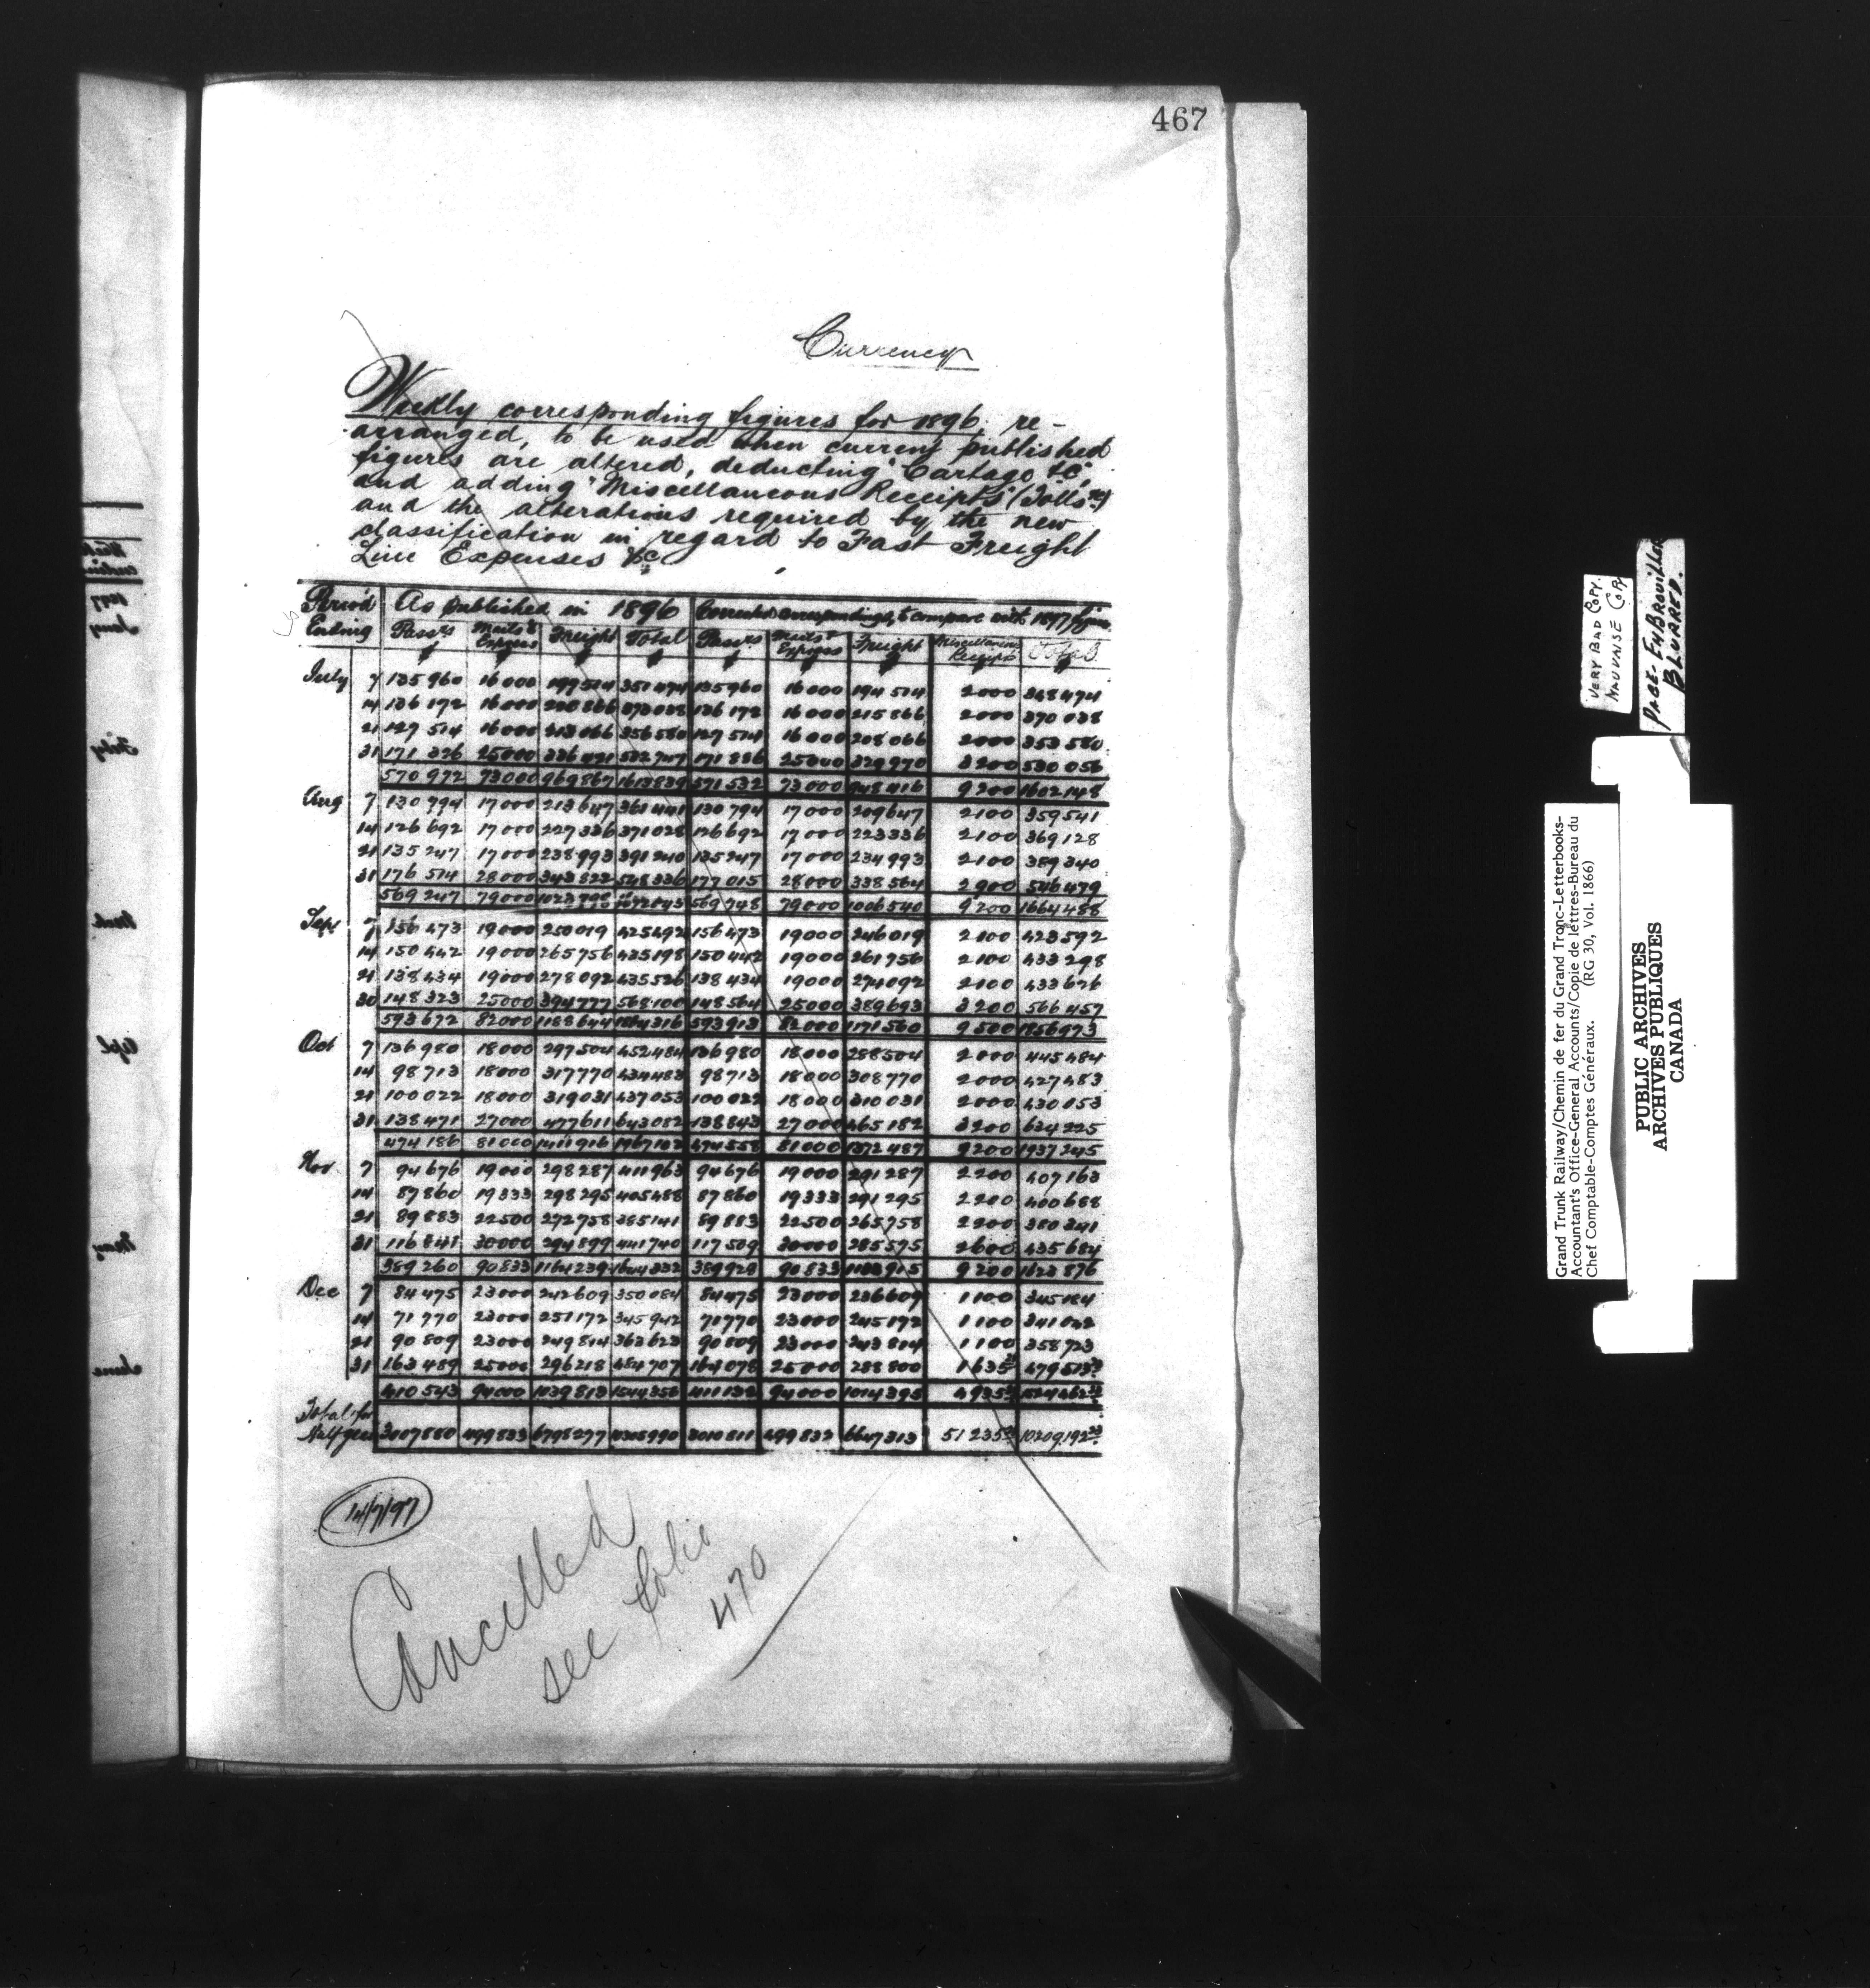 467
Currency
Weekly corresponding figures for 1896, re-
arranged, to be used when current published
figures are altered, deducting "Cartage &c",
and adding "Miscellaneous Receipts" (Tolls &c)
and the alterations required by the new
classification in regard to Fast Freight
Line Expenses &c
Period Ending | As published in 1896 | Corrected correspondings, to compare with 1897 figures
Pass'rs | Mails & Express | Freight | Total | Pass'rs | Mails & Express | Freight | Miscellaneous Receipts | Total
July 7 135960 16000 199514 351474 135960 16000 194514 2000 348474
14 136172 16000 220866 373038 136172 16000 215866 2000 370038
21 127514 16000 213066 356580 127514 16000 208066 2000 353580
31 171326 25000 336421 532747 171886 25000 329970 3200 530056
570972 73000 969867 1613839 571532 73000 948416 9200 1602148
Aug 7 130794 17000 213647 361441 130794 17000 209647 2100 359541
14 126692 17000 227336 371028 126692 17000 223336 2100 369128
21 135247 17000 238993 391240 135247 17000 234993 2100 389340
31 176514 28000 343822 548336 177015 28000 338564 2900 546479
569247 79000 1023798 569748 79000 1006540 9200 1664488
Sept 7 156473 19000 250019 425492 156473 19000 246019 2100 423592
14 150442 19000 265756 435198 150442 19000 261756 2100 433298
21 138434 19000 278092 435526 138434 19000 274092 2100 433626
30 148323 25000 394777 568100 148564 25000 389693 3200 566457
593672 82000 1188644 1864316 593913 82000 1171560 9500 1856973
Oct 7 136980 18000 297504 452484 136980 18000 288504 2000 445484
14 98713 18000 317770 434483 98713 18000 308770 2000 427483
21 100022 18000 319031 437053 100022 18000 310031 2000 430053
31 138471 27000 477611 643082 138843 27000 465182 3200 634225
474186 81000 1411916 1967102 474558 81000 1372487 9200 1937245
Nov. 7 94676 19000 298287 411963 94676 19000 291287 2200 407163
14 87860 19333 298295 405488 87860 19333 291295 2200 400688
21 89883 22500 272758 385141 89883 22500 265758 2200 380341
31 116841 30000 294899 441740 117509 30000 285575 2600 435684
389260 90833 1164239 1644332 389928 90833 9200 1623876
Dec 7 84475 23000 242609 350084 84475 23000 236609 1100 345184
14 71770 23000 251172 345942 71770 23000 245172 1100 341042
21 90809 23000 249814 363623 90809 23000 243814 1100 358723
31 163489 25000 296218 484707 164078 25000 288800 1635
410543 94000 1039813 1544356 411132 94000 1014395 4935
Total for Half year 3007880 499833 6798277 499833 51235
14/7/97
Cancelled
see folio
470
VERY BAD COPY.
MAUVAISE COPY
PAGE-EMBROUILLER
BLURRED.
Grand Trunk Railway/Chemin de fer du Grand Tronc-Letterbooks-
Accountant's Office-General Accounts/Copie de lettres-Bureau du
Chef Comptable-Comptes Généraux. (RG 30, Vol. 1866)
PUBLIC ARCHIVES
ARCHIVES PUBLIQUES
CANADA